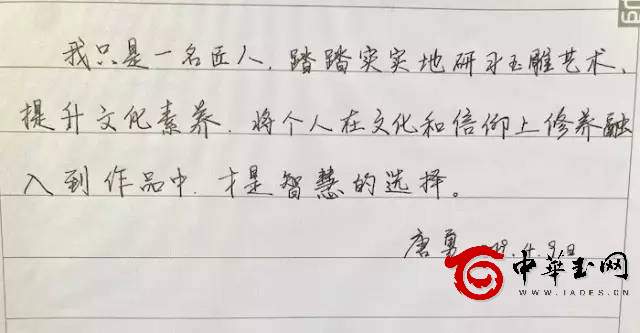 我只是一名匠人,踏踏实实地研习玉雕艺术、
提升文化素养.将个人在文化和信仰上修养融
入到作品中.才是智慧的选择。
唐勇
中華玉网
WWW.JADES.CN